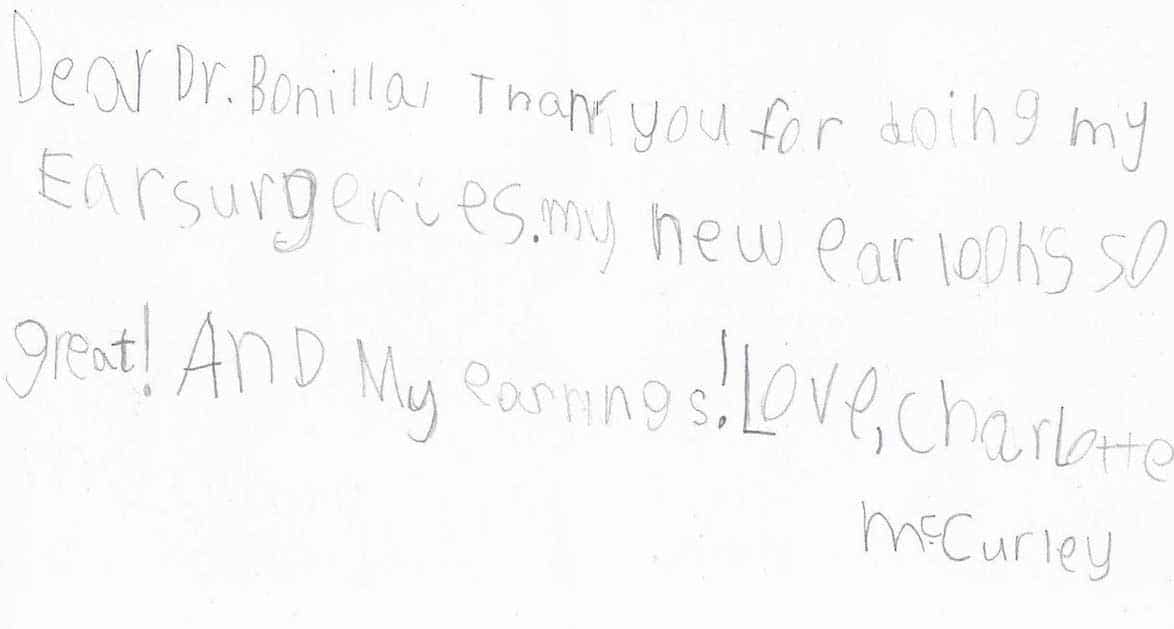 Dear Dr. Bonilla, Thank you for doing my
Ear surgeries. my new ear look's so
great! AnD My earrings! Love, Charlotte
McCurley